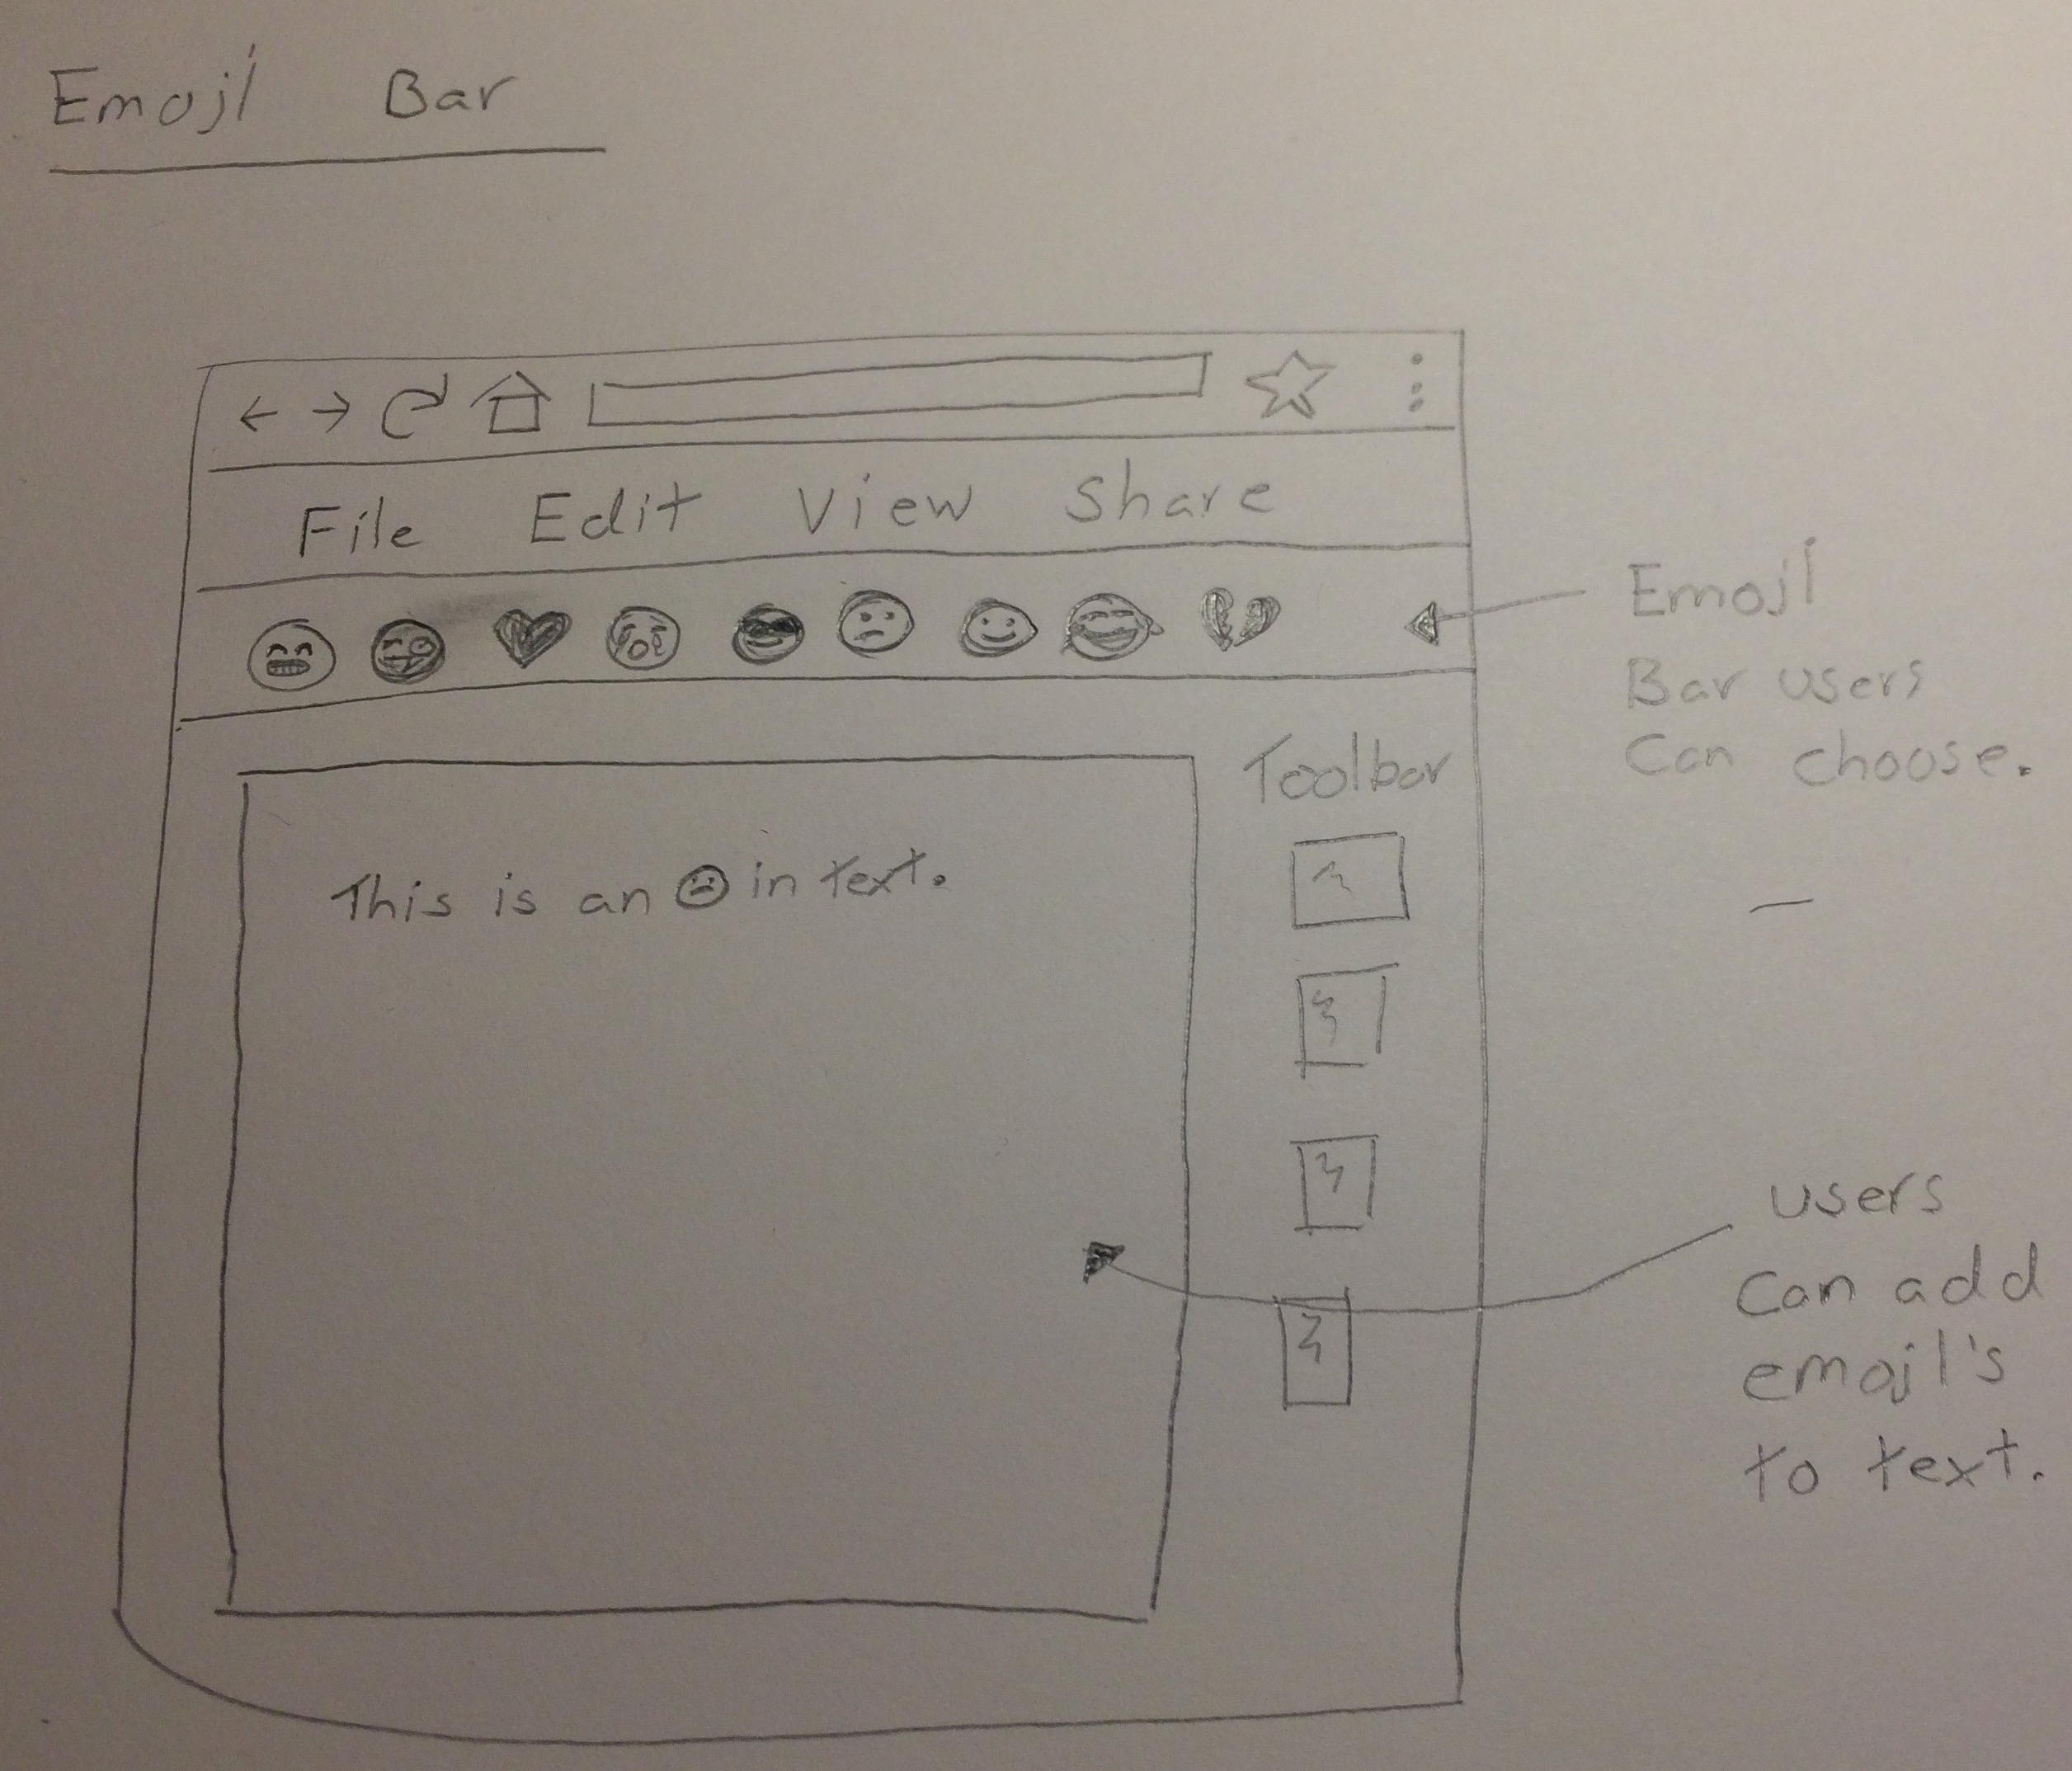 Emoji Bar
File Edit View Share
Emoji
Bar users
Can choose.
Toolbar
This is an in text.
users
Can add
emoji's
to text.